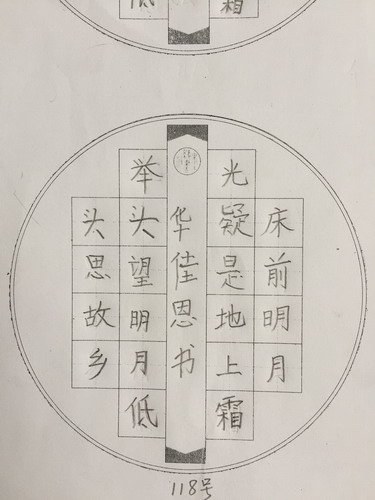 霜
低
床前明月
光疑是地上霜
华佳恩书
举头望明月低
头思故乡
118号